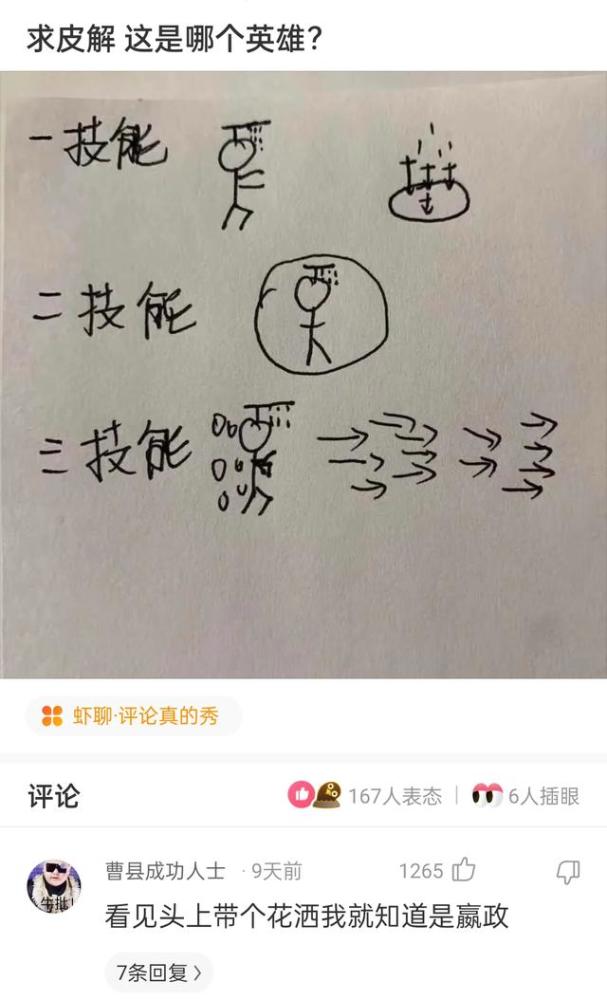 求皮解 这是哪个英雄？
一技能
二技能
三技能
虾聊·评论真的秀
评论
167人表态
6人插眼
曹县成功人士 · 9天前
1265
看见头上带个花洒我就知道是嬴政
7条回复 >